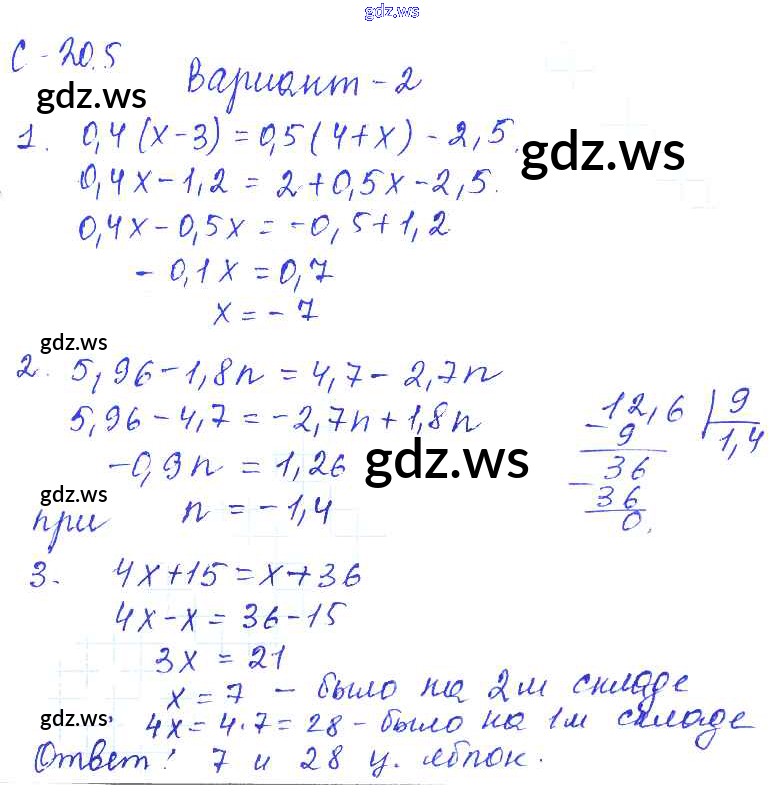 gdz.ws
С-20.5
Вариант-2
gdz.ws
1. 0,4(x-3)=0,5(4+x)-2,5.
gdz.ws
0,4x-1,2=2+0,5x-2,5.
0,4x-0,5x=-0,5+1,2
-0,1x=0,7
x=-7
gdz.ws
2. 5,96-1,8n=4,7-2,7n
5,96-4,7=-2,7n+1,8n
-0,9n=1,26
gdz.ws
gdz.ws
при n=-1,4
12,6 | 9
-9 1,4
36
-36
0.
3. 4x+15=x+36
4x-x=36-15
3x=21
x=7 - было на 2м складе
gdz.ws
4x=4·7=28 - было на 1м складе
Ответ! 7 и 28 ц. яблок.
gdz.ws